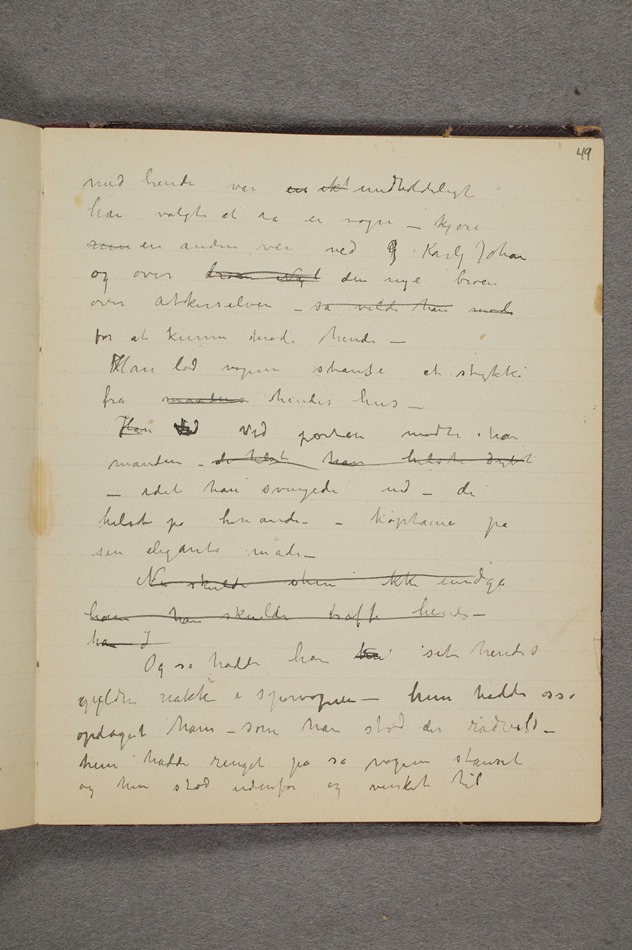 49
med hende var en ikt umdholdeligt
han valgte at ta en vogn – kjøre
en anden vei ved Karl Johan
og over broen Nyl den nye broen
over Akerselven – sa vilde han møde
for at kunne møde hende –
Han lod vognen standse et stykke
fra hendes hus –
Han ved Ved porten mødte han
manden – de hilste han hilste dybt
– idet han svingede ud – de
hilste på hinanden – kaptainen på
sin elegante måde –
Nu skulde ikke undga
ham han skulde træffe hende –
han I
Og så hadde han set hendes
gyldne nakke i sporvognen – hun hadde osså
opdaget ham – som han stod der rådvild –
hun hadde ringet på så vognen stanset
og hun stod udenfor og vinket til